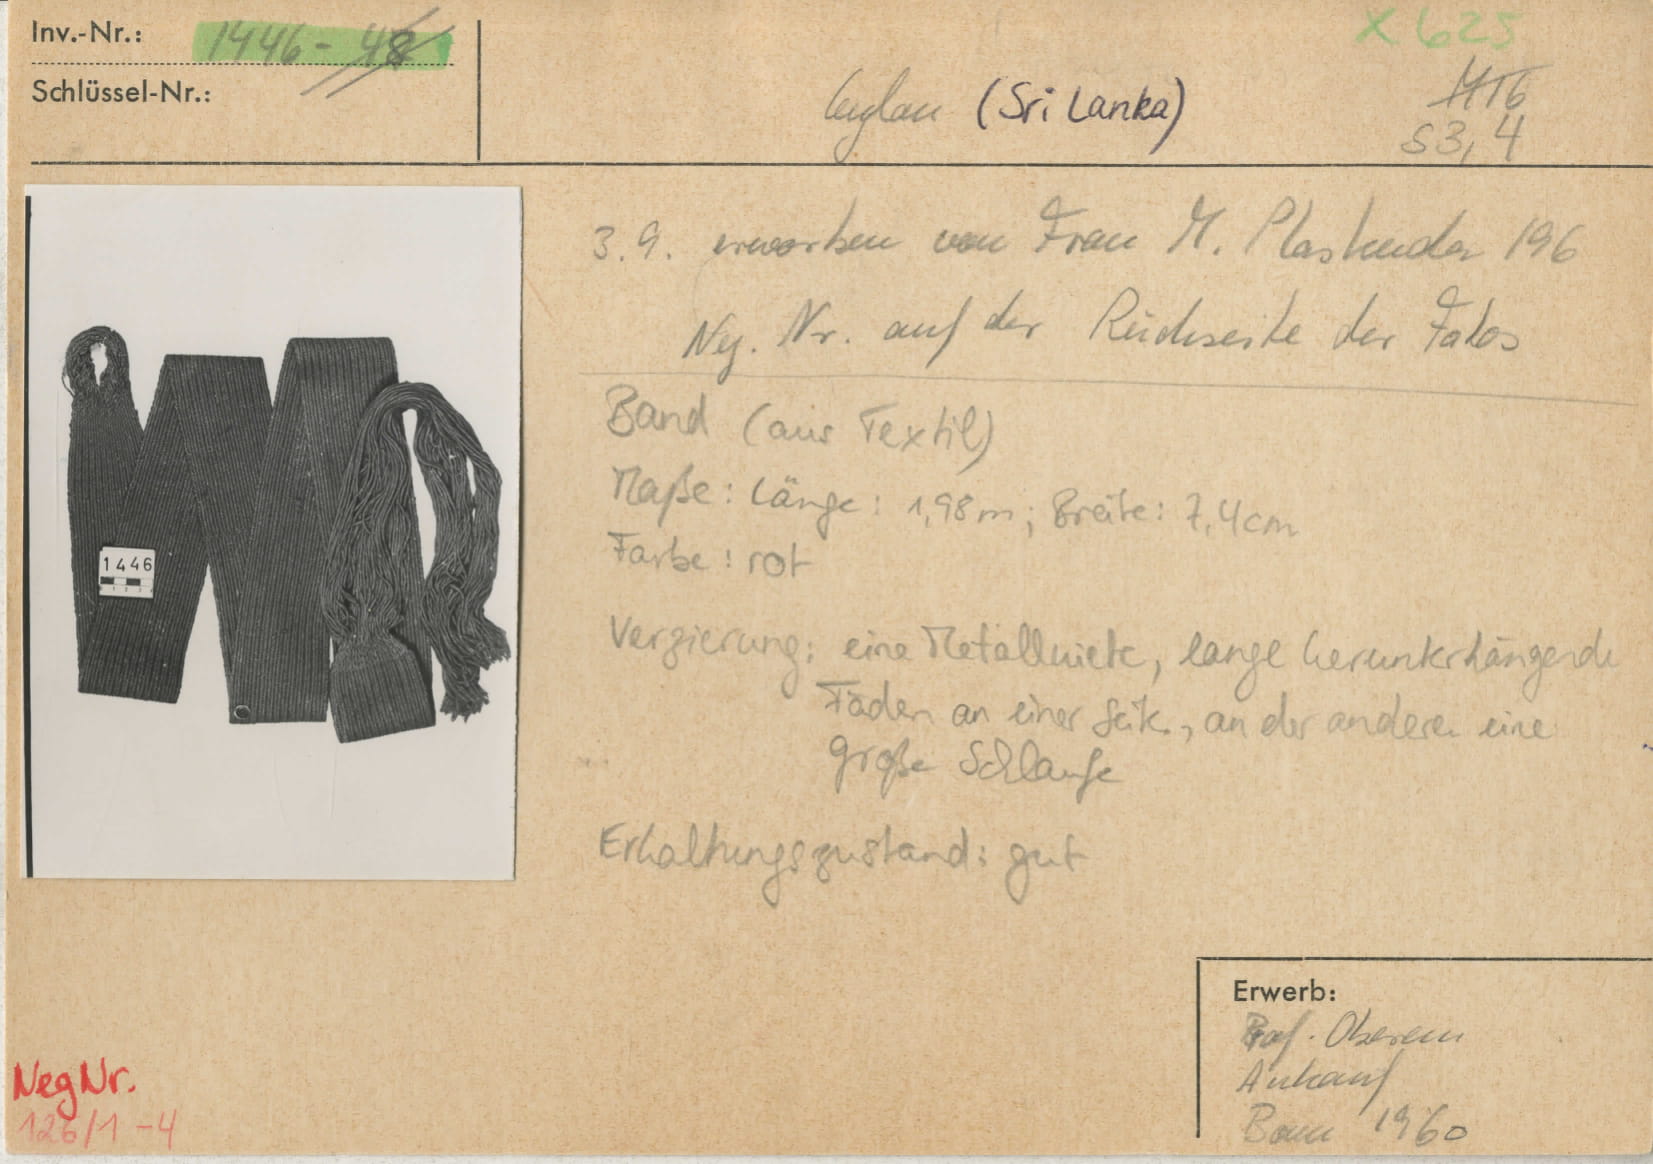 Inv.-Nr.: 1446-48
Schlüssel-Nr.:
X 625
Ceylon (Sri Lanka)
MT6
S3,4
3.9. erworben von Frau M. 196
Neg. Nr. auf der Rückseite der Fotos
Band (aus Textil)
Maße: Länge: 1,98m; Breite: 7,4cm
Farbe: rot
1446
Verzierung: eine Metallniete, lange herunterhängende
Fäden an einer Seite, an der anderen eine
große Schlaufe
Erhaltungszustand: gut
Erwerb:
Prof. Oberem
Ankauf
Bonn 1960
Neg Nr.
126/1-4